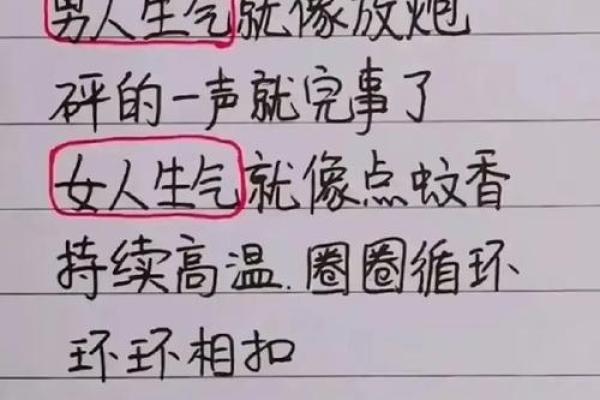 男人生气就像放炮
砰的一声就完事了
女人生气就像点蚊香
持续高温.圈圈循环
环环相扣